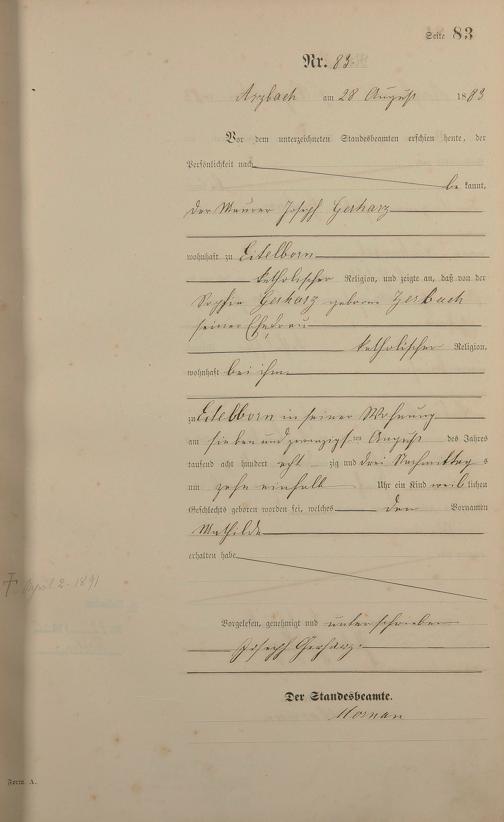 Seite 83
Nr. 83.
Arzbach am 28 August 1883
Vor dem unterzeichneten Standesbeamten erschien heute, der
Persönlichkeit nach
be kannt,
der Maurer Joseph Gerharz
wohnhaft zu Eitelborn
katholischer Religion, und zeigte an, daß von der
Sophie Gerharz geborne Zerbach
seiner Ehefrau
katholischer Religion,
wohnhaft bei ihm
zu Eitelborn in seiner Wohnung
am sieben und zwanzigsten August des Jahres
tausend acht hundert acht zig und drei Nachmittag s
um zehn einhalb Uhr ein Kind weib lichen
Geschlechts geboren worden sei, welches den Vornamen
Mathilde
erhalten habe
† April 2-1891
Vorgelesen, genehmigt und unterschrieben
Joseph Gerharz.
Der Standesbeamte.
Form. A.